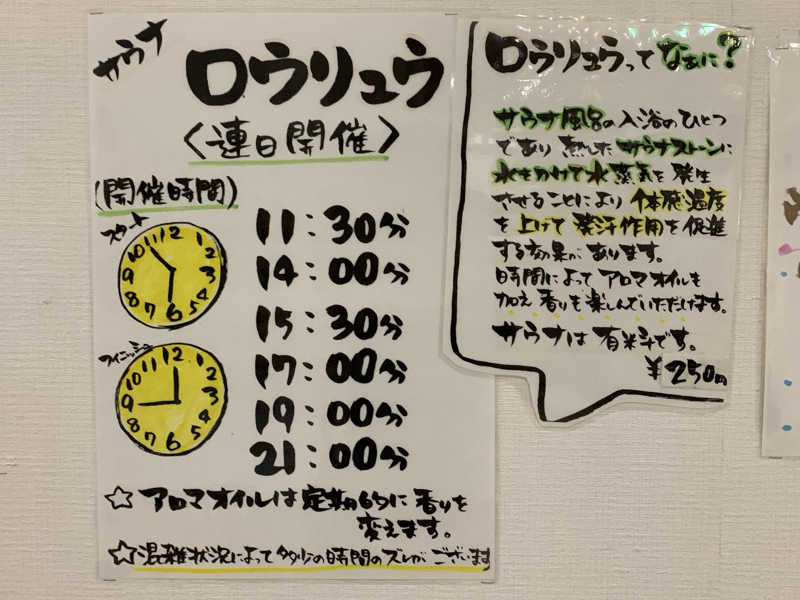 サウナ
ロウリュウ
〈連日開催〉
(開催時間)
スタート
12
1
2
3
4
5
6
7
8
9
10
11
フィニッシュ
12
1
2
3
4
5
6
7
8
9
10
11
11:30分
14:00分
15:30分
17:00分
19:00分
21:00分
☆アロマオイルは定期的に香りを
変えます。
☆混雑状況によって多少の時間のズレがございます
ロウリュウってなぁに?
サウナ風呂の入浴のひとつ
であり熱したサウナストーンに
水をかけて水蒸気を発生
させることにより体感温度
を上げて発汗作用を促進
する効果があります。
時間によってアロマオイルも
加え香りも楽しんでいただけます。
サウナは有料です。
¥250円